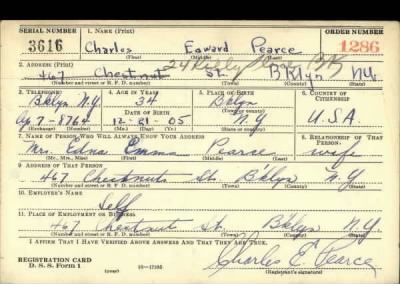 SERIAL NUMBER 1. NAME (Print) ORDER NUMBER
3616 Charles Edward Pearce 1286
(First) (Middle) (Last)
2. ADDRESS (Print)
467 Chestnut St. Bklyn N.Y.
(Number and street or R. F. D. number) (Town) (County) (State)
3. TELEPHONE 4. AGE IN YEARS 5. PLACE OF BIRTH 6. COUNTRY OF CITIZENSHIP
Bklyn N.Y. 34 Bklyn
DATE OF BIRTH
7-8764 12-21-05 N.Y U.S.A.
(Exchange) (Number) (Mo.) (Day) (Yr.) (State or country)
7. NAME OF PERSON WHO WILL ALWAYS KNOW YOUR ADDRESS 8. RELATIONSHIP OF THAT PERSON
Mrs. Edna Emma Pearce wife
(Mr., Mrs., Miss) (First) (Middle) (Last)
9. ADDRESS OF THAT PERSON
467 Chestnut St. Bklyn N.Y
(Number and street or R. F. D. number) (Town) (County) (State)
10. EMPLOYER'S NAME
Self
11. PLACE OF EMPLOYMENT OR BUSINESS
467 Chestnut St. Bklyn N.Y.
(Number and street or R. F. D. number) (Town) (County) (State)
I AFFIRM THAT I HAVE VERIFIED ABOVE ANSWERS AND THAT THEY ARE TRUE.
REGISTRATION CARD
D. S. S. Form 1 (over) 16—17105 Charles E. Pearce
(Registrant's signature)